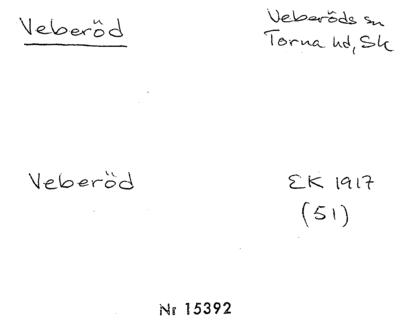 Veberöd
Veberöds sn
Torna hd, Sk
Veberöd
EK 1917
(51)
Nr 15392